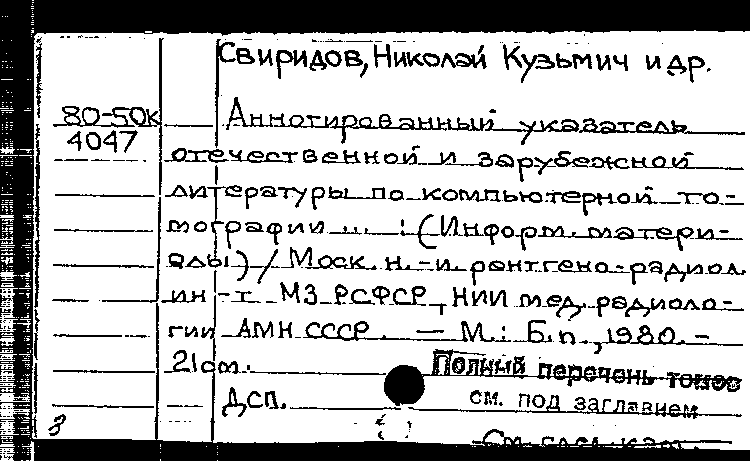 Свиридов, Николай Кузьмич и др.
80-50к
Аннотированный указатель
4047
отечественной и зарубежной
литературы по компьютерной то-
мографии ... : (Информ. матери-
алы) / Моск. н.-и. рентгено-радиол.
ин-т МЗ РСФСР, НИИ мед. радиоло-
гии АМН СССР. — М.: Б.и., 1980. -
21см.
Полный перечень томов
см. под заглавием
Дсп.
См. след. кат.
3